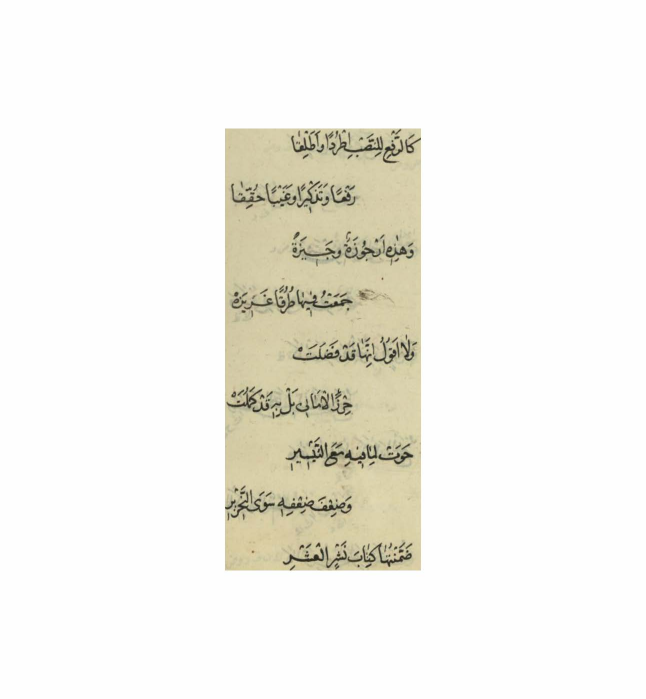 كَالرَّفْعِ لِلنَّصْبِ اطْرُدًا وَأَطْلِقَا
رَفْعًا وَتَذْكِيرًا وَغَيْبًا حُقِّقَا
وَهٰذِهِ اَرْجُوزَةٌ وَجِيزَةٌ
جَمَعْتُ فِيهَا طُرُقًا غَزِيزَهْ
وَلَا اَقُولُ اِنَّهَا قَدْ فَضَلَتْ
حِرْزَ الْاَمَانِى بَلْ بِهِ قَدْ كَمُلَتْ
حَوَتْ لِمَا فِيهِ مَعَ التَّيْسِيرِ
وَضِعْفَ ضِعْفِهِ سِوَى التَّحْرِيرِ
ضَمَّنْتُهَا كِتَابَ نَشْرِ الْعَشْرِ